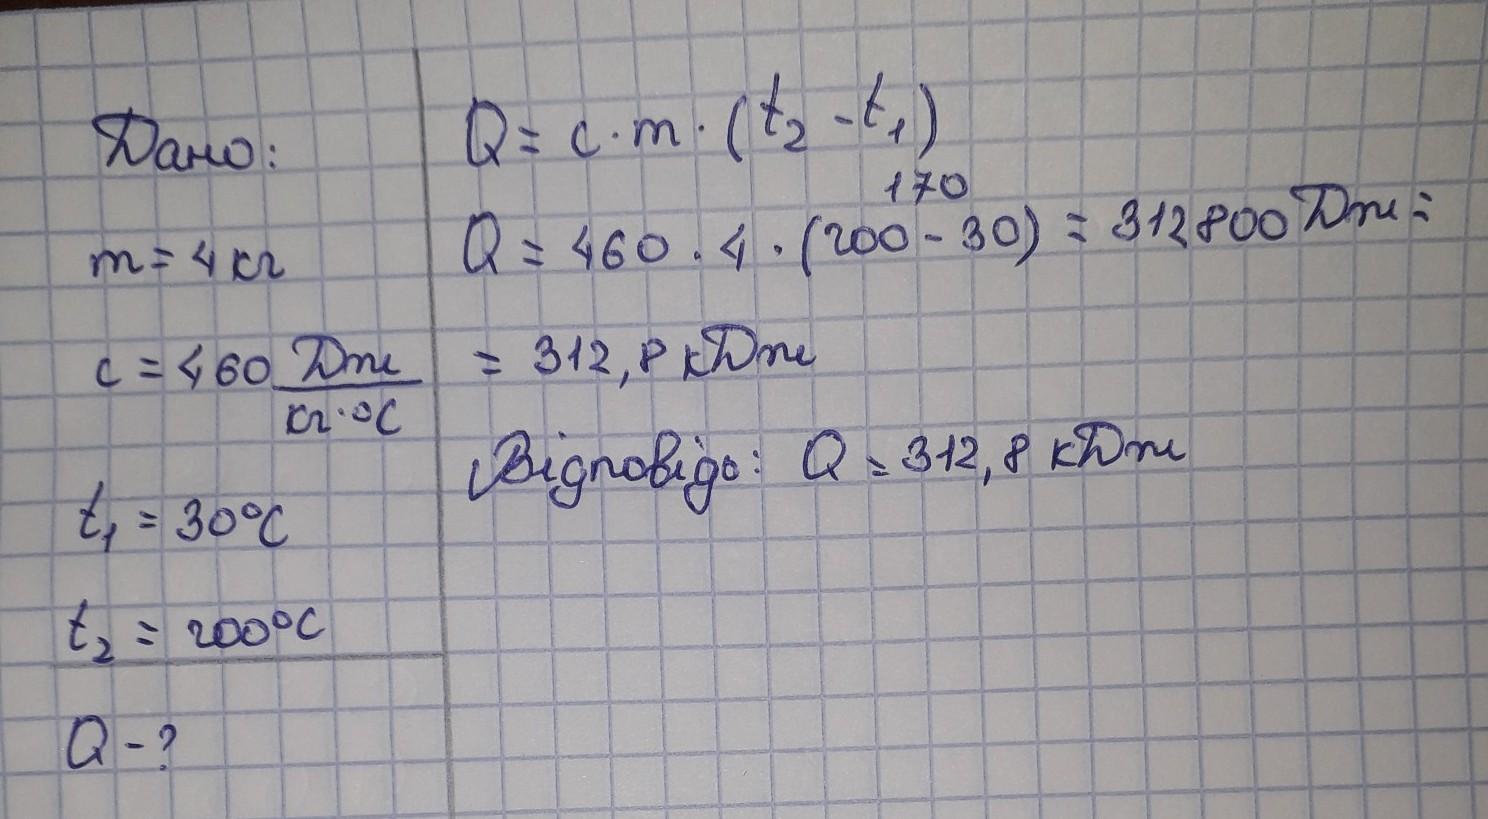 Дано:
m = 4 кг
c = 460 Дж
кг·°С
t₁ = 30°С
t₂ = 200°С
Q - ?
Q = c · m · (t₂ - t₁)
170
Q = 460 · 4 · (200 - 30) = 312800 Дж =
= 312,8 кДж
Відповідь: Q = 312,8 кДж